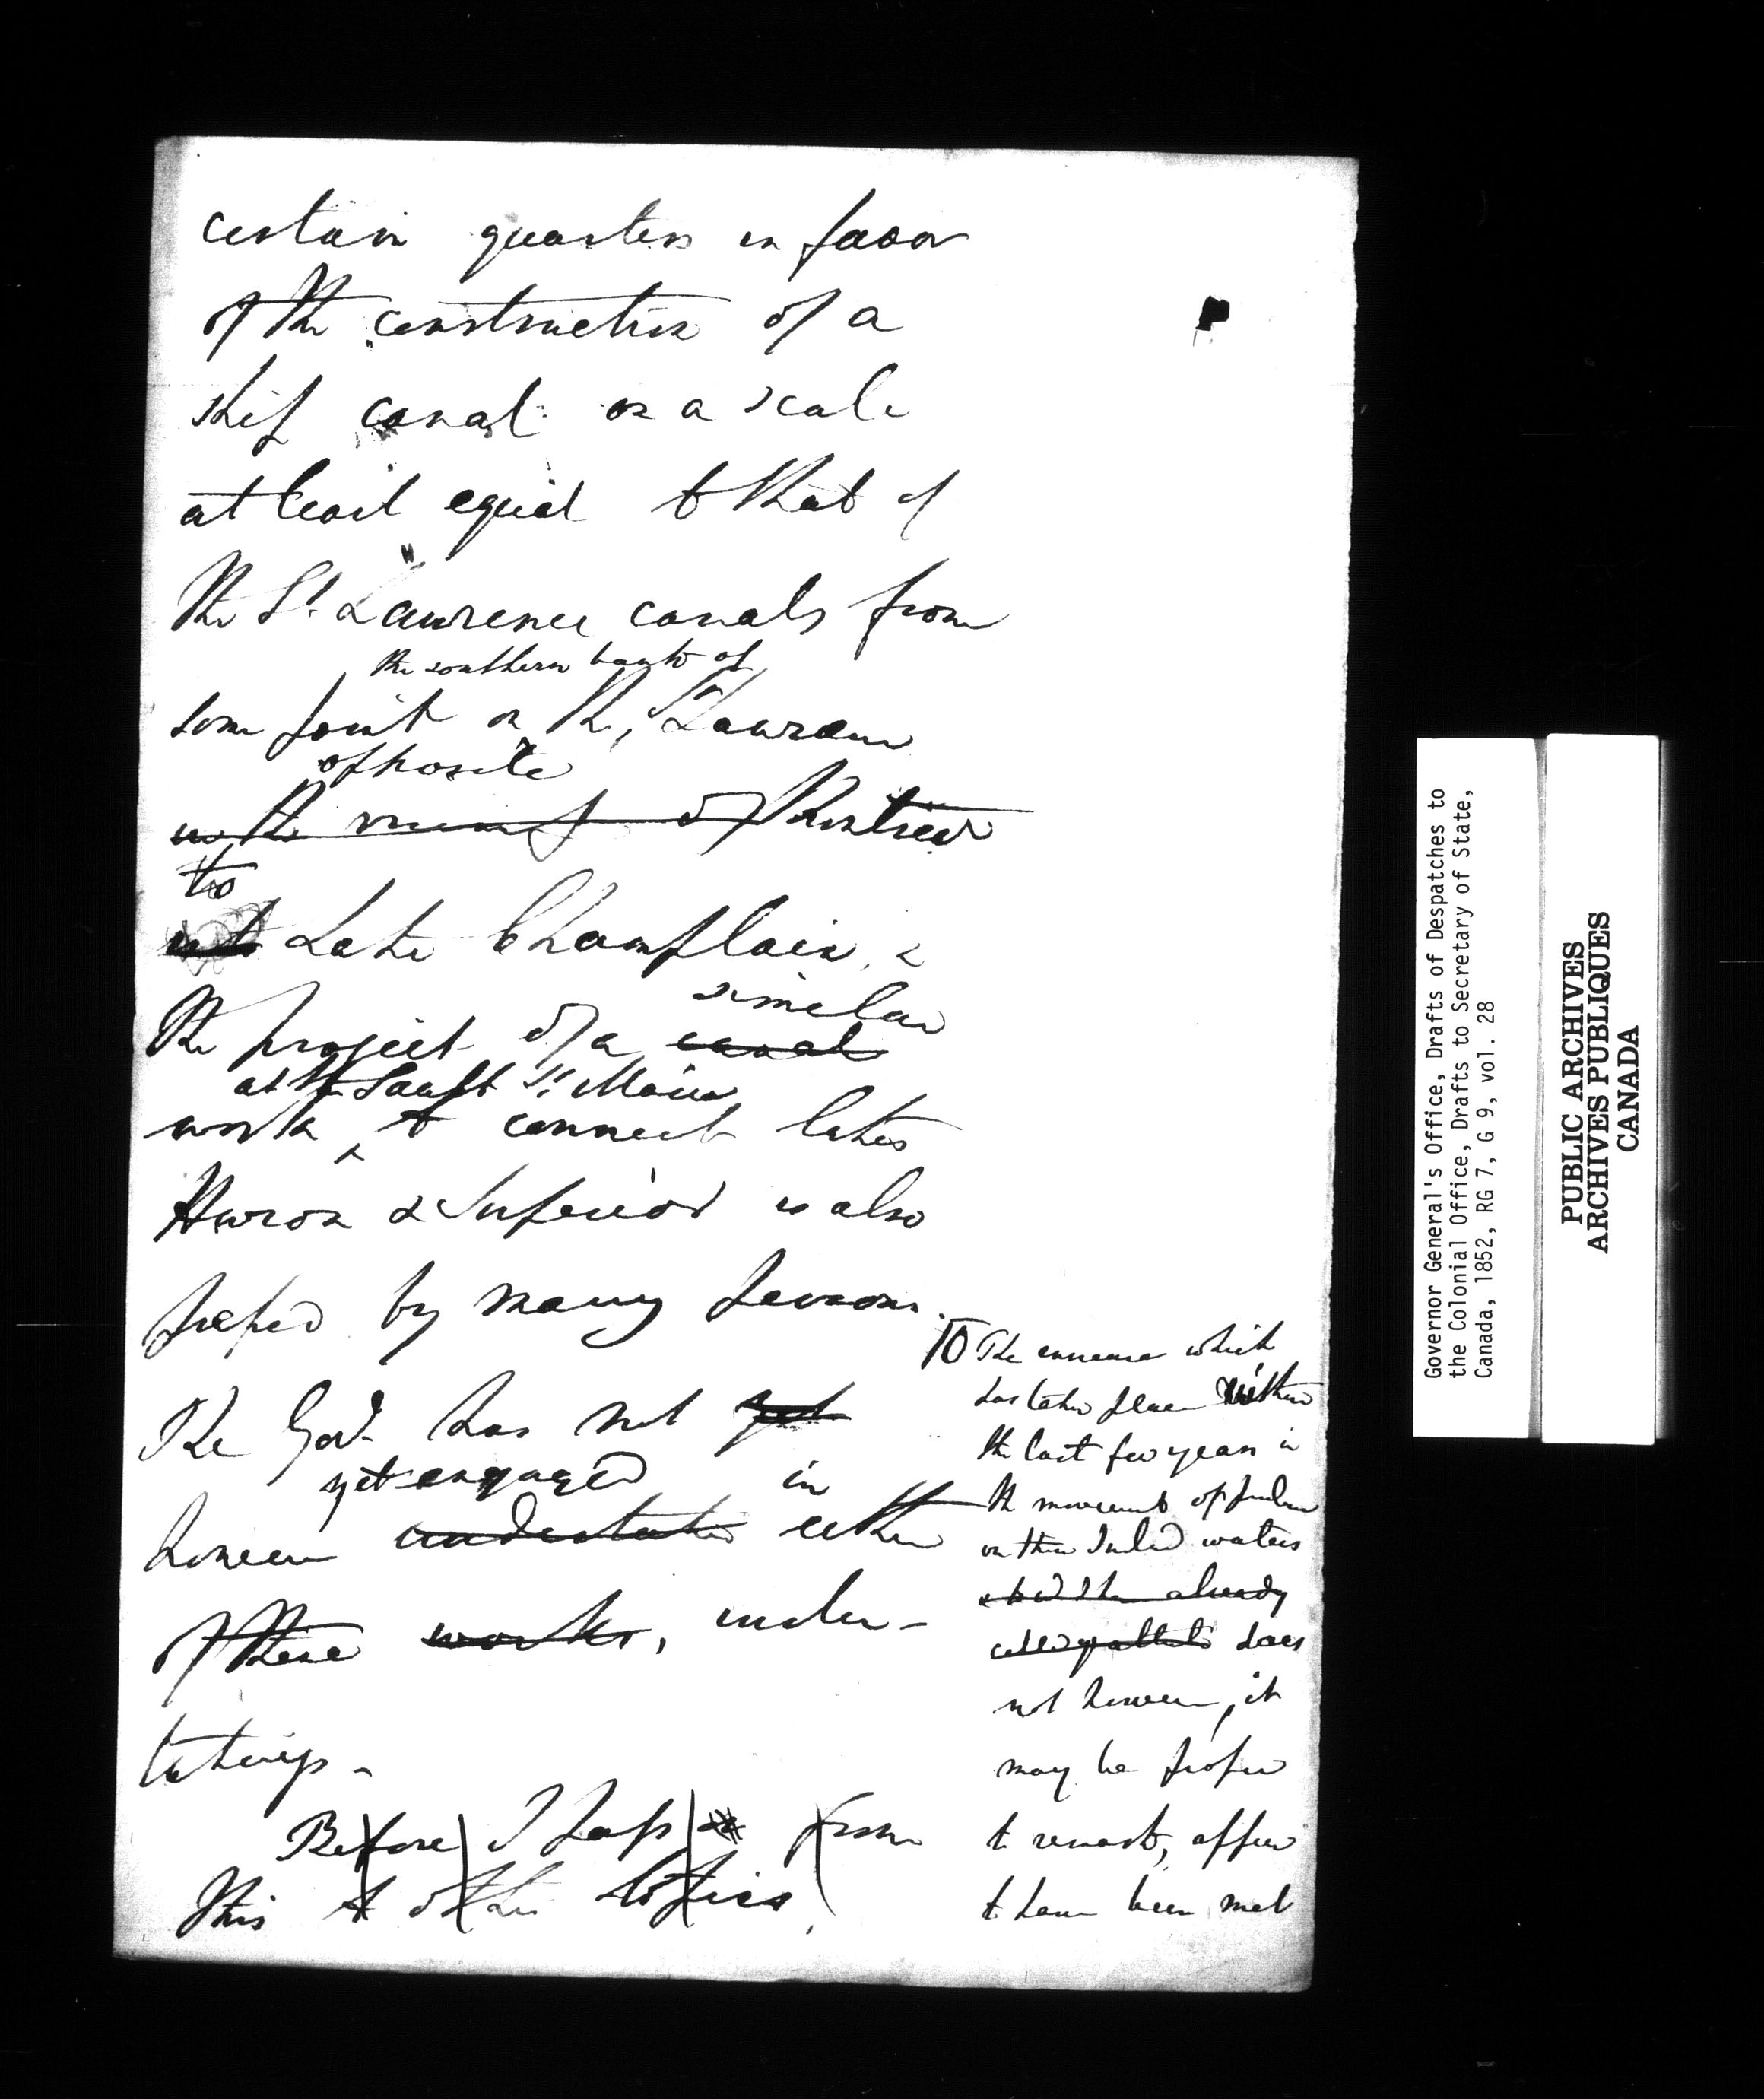 certain quarters in favor
of the construction of a
ship canal on a scale
at least equal to that of
the St. Lawrence canals from
the southern bank of
some point on the St Lawrence
opposite
in the vicinity of Montreal
to
into Lake Champlain, &
similar
the project of a canal
at the Sault St. Marie
work ^ to connect lakes
Huron & Superior is also
pressed by many persons.
The Govt. has not yet
yet engaged in
however undertaken either
of these works, under-
takings -
Before I pass from
this to other topics,
The increase which
has taken place within
the last few years in
the movement of trade
on the Inland waters
already
does
not however, it
may be proper
to remark, appear
to have been met
Governor General's Office, Drafts of Despatches to
the Colonial Office, Drafts to Secretary of State,
Canada, 1852, RG 7, G 9, vol. 28
PUBLIC ARCHIVES
ARCHIVES PUBLIQUES
CANADA